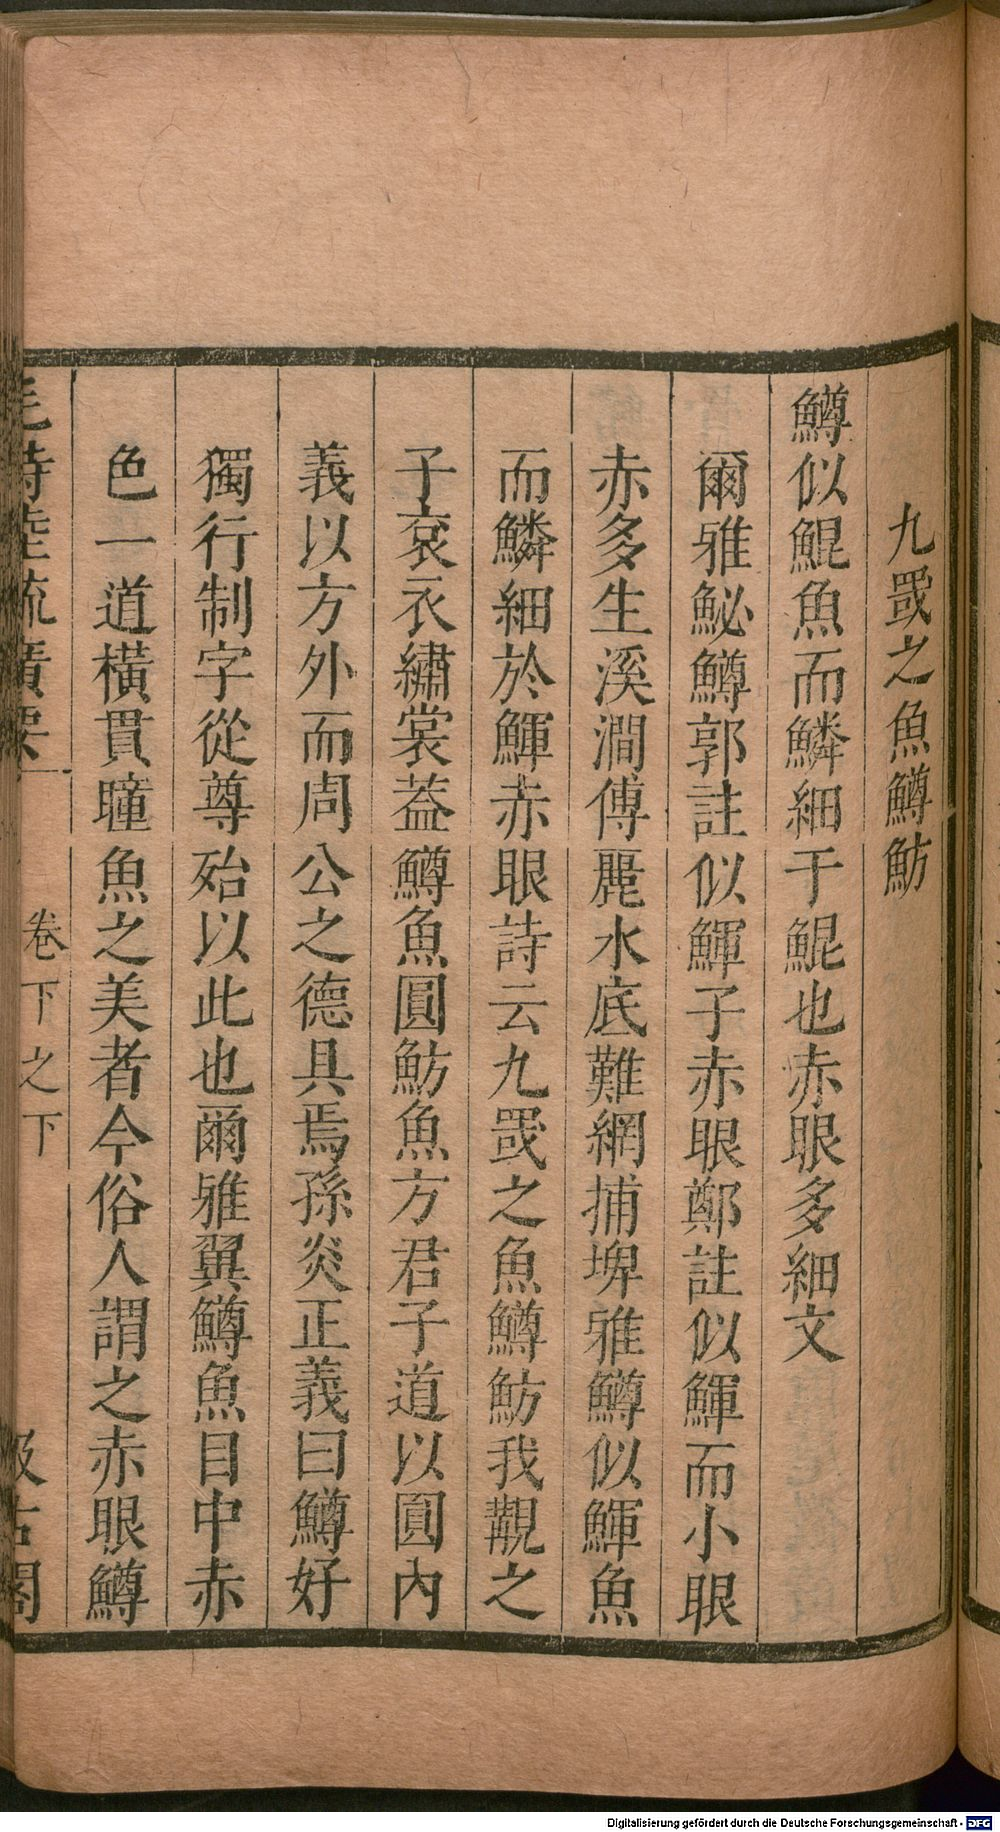 九罭之魚鱒魴
鱒似鯤魚而鱗細于鯤也赤眼多細文
爾雅鮅鱒郭註似鯶子赤眼鄭註似鯶而小眼
赤多生溪澗傅麗水底難網捕埤雅鱒似鯶魚
而鱗細於鯶赤眼詩云九罭之魚鱒魴我覯之
子袞衣繡裳葢鱒魚圓魴魚方君子道以圓內
義以方外而周公之德具焉孫炎正義曰鱒好
獨行制字從尊殆以此也爾雅翼鱒魚目中赤
色一道橫貫瞳魚之美者今俗人謂之赤眼鱒
毛詩陸疏廣要 卷下之下 汲古閣
Digitalisierung gefördert durch die Deutsche Forschungsgemeinschaft - DFG